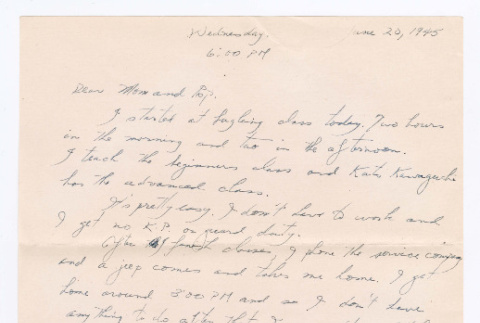 Wednesday. June 20, 1945
6:00 PM
Dear Mom and Pop.
I started at bugling class today. Two hours
in the morning and two in the afternoon.
I teach the beginners class and Kats
has the advanced class.
It's pretty easy. I don't have to work and
I get no K.P. or guard duty.
After I finish classes, I phone the service company
and a jeep comes and takes me home. I get
home around 3:00 PM and so I don't have
anything to do after that.